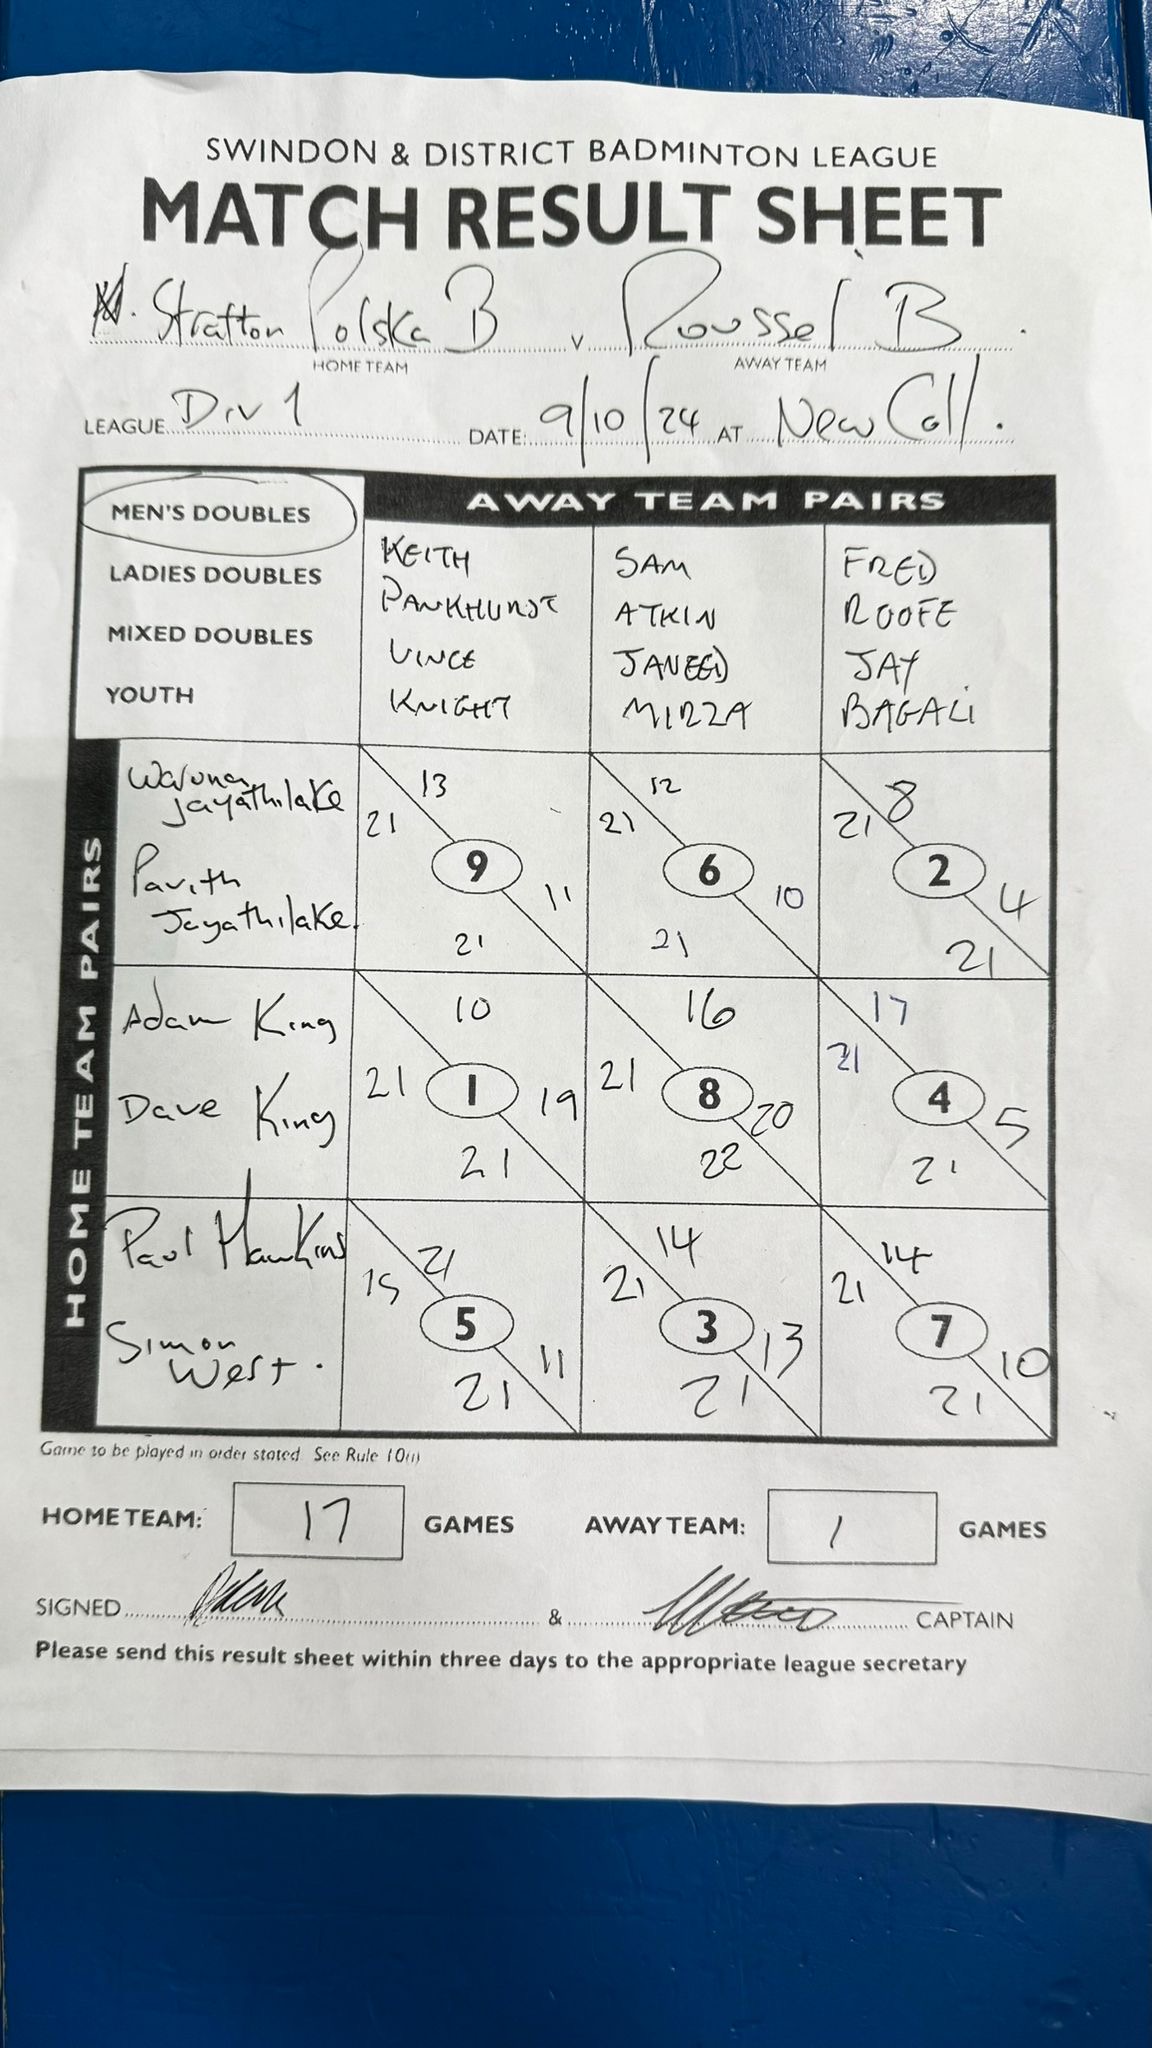 SWINDON & DISTRICT BADMINTON LEAGUE
MATCH RESULT SHEET
N. Stratton Polska B v Roussel B .
HOME TEAM AWAY TEAM
LEAGUE Div 1 DATE: 9/10/24 AT New Coll.
MEN'S DOUBLES
LADIES DOUBLES
MIXED DOUBLES
YOUTH
AWAY TEAM PAIRS
KEITH
PANKHURST
VINCE
KNIGHT
SAM
ATKIN
JANEED
MIRZA
FRED
ROOFE
JAY
BAGALI
HOME TEAM PAIRS
Waruna
Jayathilake
Pavith
Jayathilake
13
21
9
11
21
12
21
6
10
21
8
21
2
4
21
Adam King
Dave King
10
21
1
19
21
16
21
8
20
22
17
21
4
5
21
Paul Hawkins
Simon
West.
21
15
5
11
21
14
21
3
13
21
14
21
7
10
21
Game to be played in order stated See Rule 10(i)
HOME TEAM: 17 GAMES AWAY TEAM: 1 GAMES
SIGNED & CAPTAIN
Please send this result sheet within three days to the appropriate league secretary